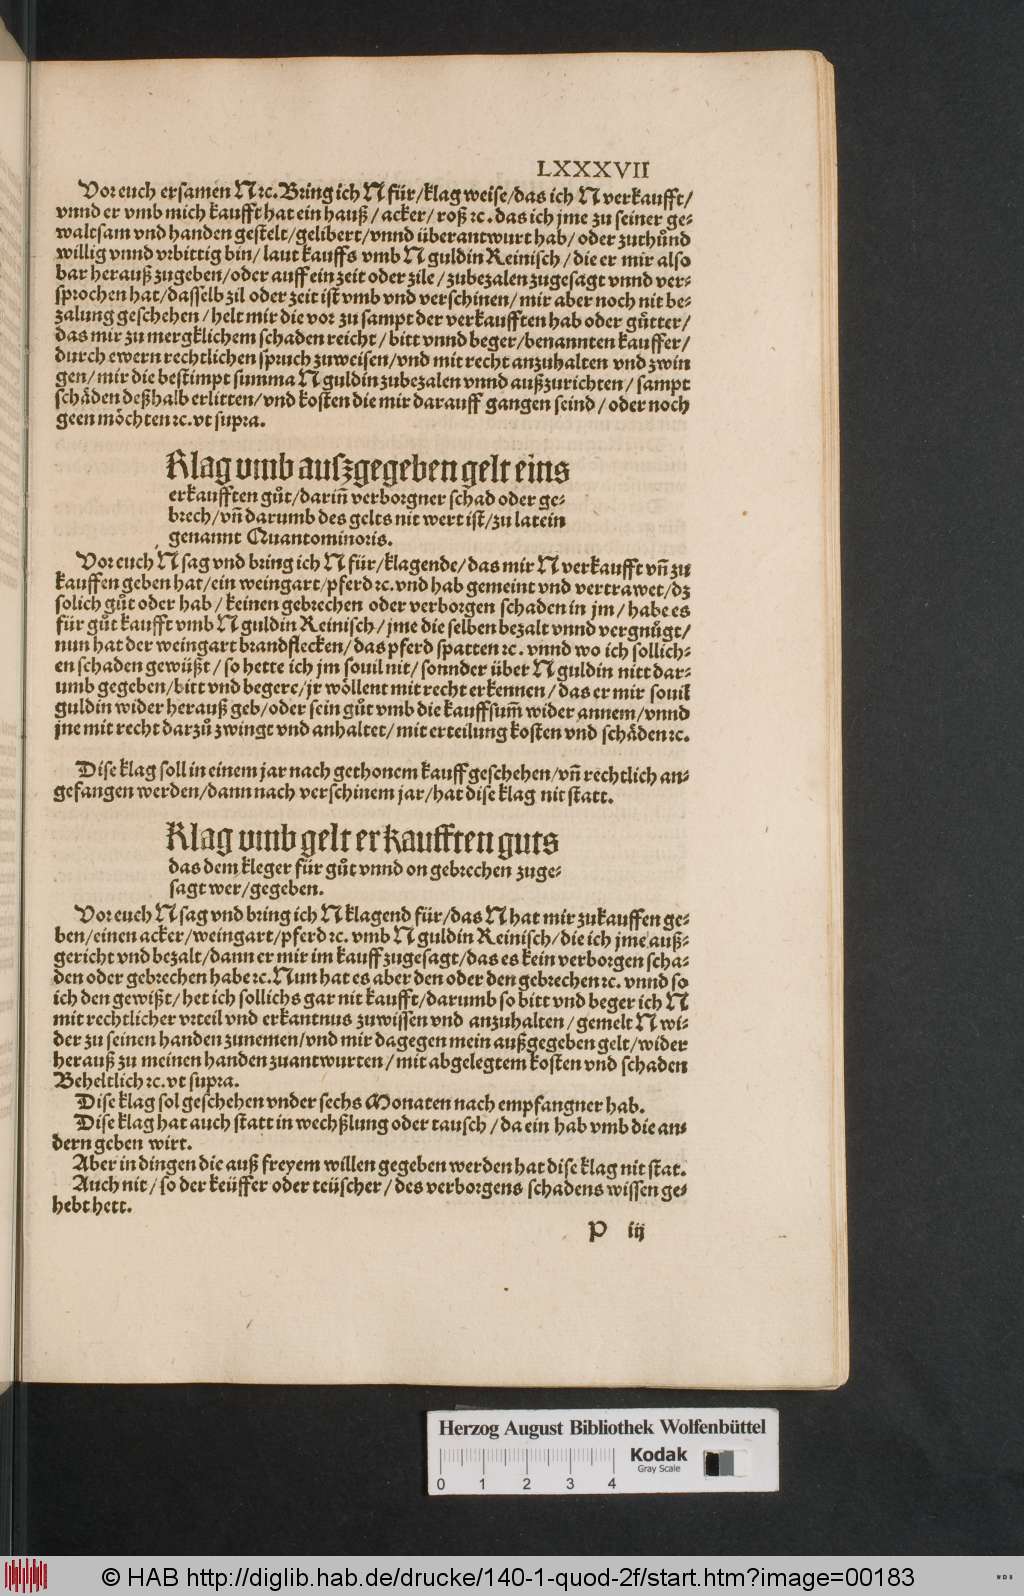 LXXXVII
Vor euch ersamen N ⁊c. Bring ich N für/klag weise/das ich N verkaufft/
vnnd er vmb mich kaufft hat ein hauß/ acker/ roß ⁊c. das ich jme zu seiner ge⸗
waltsam vnd handen gestelt/gelibert/vnnd überantwurt hab/ oder zuthůnd
willig vnnd vrbittig bin/ laut kauffs vmb N guldin Reinisch/die er mir also
bar herauß zugeben/oder auff ein zeit oder zile/ zubezalen zugesagt vnnd ver⸗
sprochen hat/dasselb zil oder zeit ist vmb vnd verschinen/ mir aber noch nit be⸗
zalung geschehen/ helt mir die vor zu sampt der verkaufften hab oder gůtter/
das mir zu mergklichem schaden reicht/ bitt vnnd beger/benannten kauffer/
durch ewern rechtlichen spruch zuweisen/vnd mit recht anzuhalten vnd zwin
gen/ mir die bestimpt summa N guldin zubezalen vnnd außzurichten/ sampt
schäden deßhalb erlitten/vnd kosten die mir darauff gangen seind/ oder noch
geen möchten ⁊c. vt supra.
Klag vmb auszgegeben gelt eins
erkaufften gůt/darin̄ verborgner schad oder ge⸗
brech/vn̄ darumb des gelts nit wert ist/zu latein
genannt Quantominoris.
Vor euch N sag vnd bring ich N für/klagende/das mir N verkaufft vn̄ zu
kauffen geben hat/ein weingart/pferd ⁊c. vnd hab gemeint vnd vertrawet/dz
solich gůt oder hab/ keinen gebrechen oder verborgen schaden in jm/ habe es
für gůt kaufft vmb N guldin Reinisch/jme die selben bezalt vnnd vergnůgt/
nun hat der weingart brandflecken/das pferd spatten ⁊c. vnnd wo ich sollich⸗
en schaden gewüßt/ so hette ich jm souil nit/ sonnder über N guldin nitt dar⸗
umb gegeben/bitt vnd begere/jr wöllent mit recht erkennen/das er mir souil
guldin wider herauß geb/oder sein gůt vmb die kauffsum̄ wider annem/vnnd
jne mit recht darzů zwingt vnd anhaltet/mit erteilung kosten vnd schäden ⁊c.
Dise klag soll in einem jar nach gethonem kauff geschehen/vn̄ rechtlich an⸗
gefangen werden/dann nach verschinem jar/hat dise klag nit statt.
Klag vmb gelt erkaufften guts
das dem kleger für gůt vnnd on gebrechen zuge⸗
sagt wer/gegeben.
Vor euch N sag vnd bring ich N klagend für/das N hat mir zukauffen ge⸗
ben/einen acker/weingart/pferd ⁊c. vmb N guldin Reinisch/die ich jme auß⸗
gericht vnd bezalt/dann er mir im kauff zugesagt/das es kein verborgen scha⸗
den oder gebrechen habe ⁊c. Nun hat es aber den oder den gebrechen ⁊c. vnnd so
ich den gewißt/het ich sollichs gar nit kaufft/darumb so bitt vnd beger ich N
mit rechtlicher vrteil vnd erkantnus zuwissen vnd anzuhalten/gemelt N wi⸗
der zu seinen handen zunemen/vnd mir dagegen mein außgegeben gelt/wider
herauß zu meinen handen zuantwurten/mit abgelegtem kosten vnd schaden
Beheltlich ⁊c. vt supra.
Dise klag sol geschehen vnder sechs Monaten nach empfangner hab.
Dise klag hat auch statt in wechßlung oder tausch/da ein hab vmb die an⸗
dern geben wirt.
Aber in dingen die auß freyem willen gegeben werden hat dise klag nit stat.
Auch nit/ so der keüffer oder teüscher/des verborgens schadens wissen ge⸗
hebt hett.
P iij
Herzog August Bibliothek Wolfenbüttel
0 1 2 3 4
Kodak
Gray Scale
© HAB http://diglib.hab.de/drucke/140-1-quod-2f/start.htm?image=00183